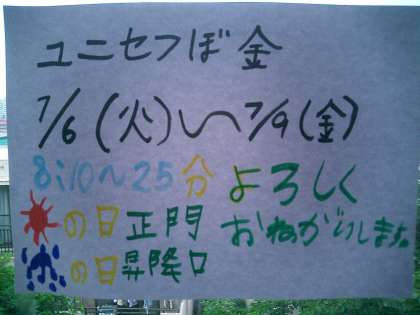 ユニセフぼ金
7/6(火)〜7/9(金)
8:10〜25分
の日正門
の日昇降口
よろしく
おねがいします。